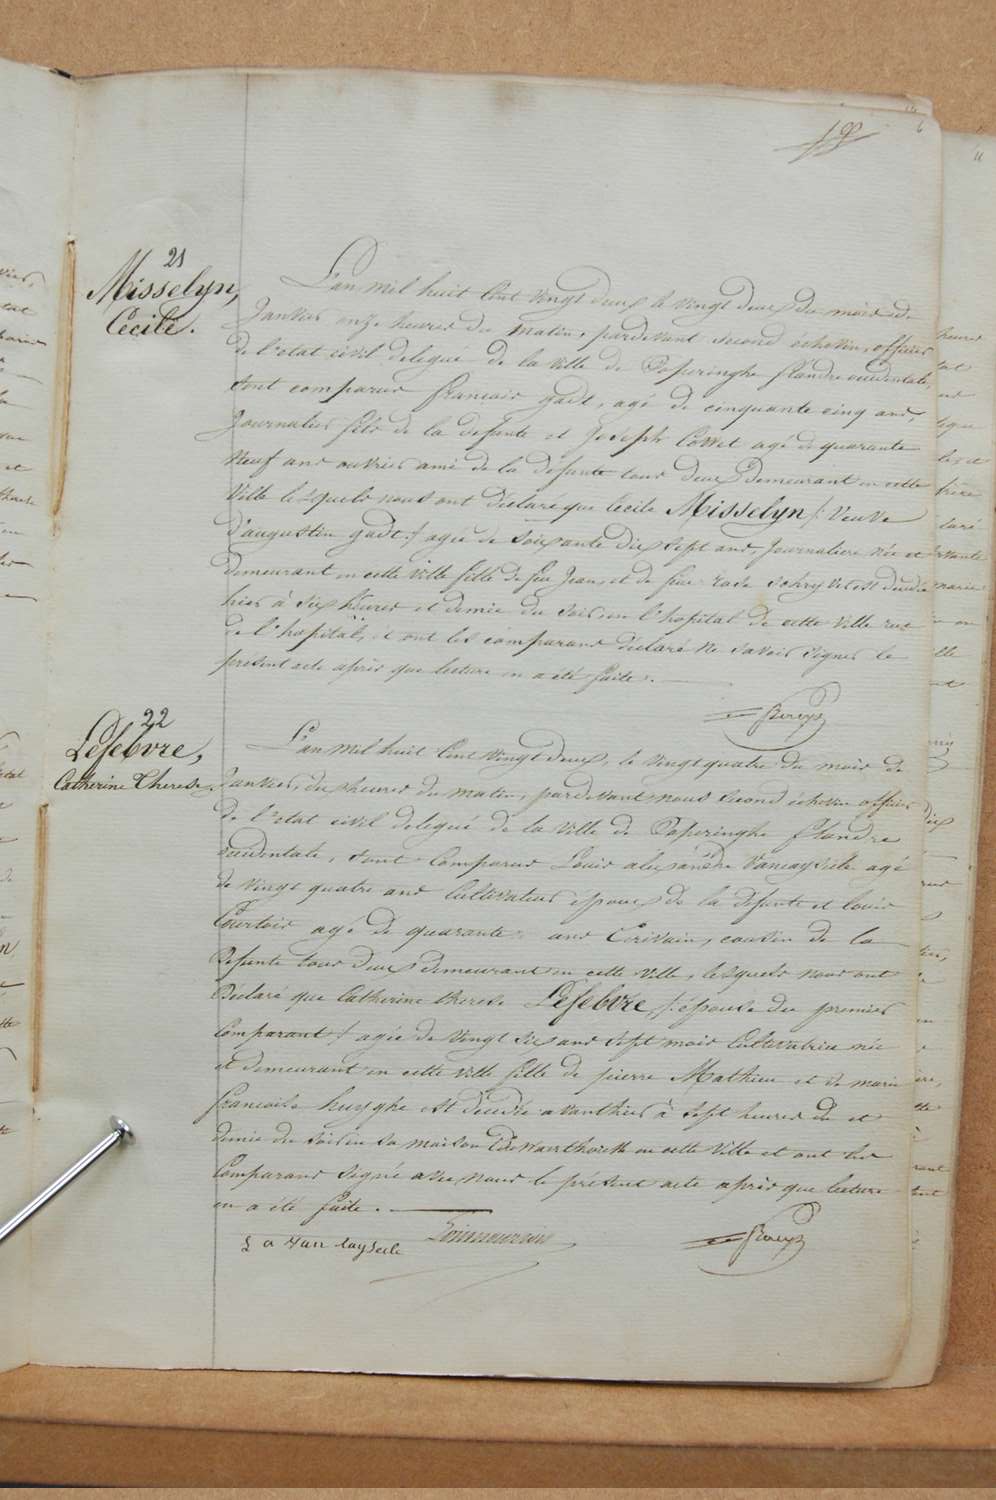 21
Misselyn,
Cécile.
L'an mil huit cent vingt deux le vingt deux du mois de
Janvier onze heures du matin, pardevant second échevin, officier
de l'etat civil delegué de la ville de Poperinghe flandre occidentale,
sont comparus francois gadt, agé de cinquante cinq ans,
Journalier fils de la defunte et Joseph agé de quarante
Neuf ans ouvrier ami de la défunte tous deux demeurant en cette
Ville lesquels nous ont déclaré que Cécile Misselyn /: Veuve
d'augustin gadt :/ agée de soixante dix sept ans, Journaliere née et
demeurant en cette ville fille de feu Jean, et de feue est decedée
hier à six heures et demie du soir, en l'hopital de cette Ville rue
de l'hopital, et ont les comparans déclaré ne savoir signer le
présent acte après que lecture en a été faite.
22
Lefebvre,
Catherine Therese.
L'an mil huit cent vingt deux, le vingt quatre du mois de
Janvier, dix heures du matin, pardevant nous second échevin officier
de l'etat civil delegué de la Ville de Poperinghe flandre
occidentale, sont comparus Louis alexandre Vancayseele agé
de vingt quatre ans Cultivateur epoux de la défunte et louis
Courtois agé de quarante ans Ecrivain, cousin de la
defunte tous deux demeurant en cette ville, lesquels nous ont
Déclaré que Catherine therese Lefebvre, /: épouse du premier
Comparant :/ agée de vingt six ans sept mois Cultivatrice née
et demeurant en cette ville fille de pierre Mathieu et de marie
francoise huyghe est décédée avanthier à sept heures et
demie du soir en sa maison en cette Ville et ont les
Comparans signé avec nous le présent acte après que lecture
en a été faite.
L a Van cayseele